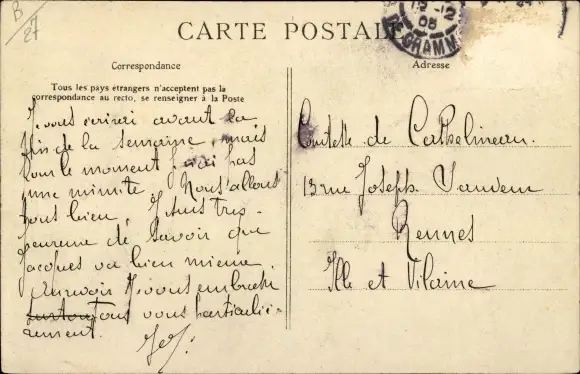 B
27
CARTE POSTALE
12-12
08
GRAMM
Correspondance
Adresse
Tous les pays étrangers n'acceptent pas la
correspondance au recto, se renseigner à la Poste
J. vous écrirai avant la
fin de la semaine, mais
pour le moment j'ai pas
une minute. Nous allons
tous bien. Je suis très
heureuse de savoir que
Jacques va bien mieux.
Au revoir Je vous embrasse
surtout Tous vous particuliè-
rement.
Comtesse de Cathelineau.
13 rue Joseph Sauveur
Rennes
Ille et Vilaine